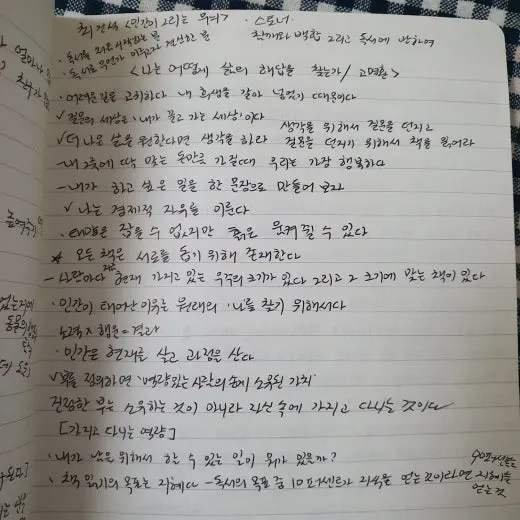 최진석 <인간이 그리는 무늬> · 스토너
· 독서를 처음 시작하는 분 참깨와 백합 그리고 독서에 관하여
· 독서로 무언가 이루고자 결심한 분
<나는 어떻게 삶의 해답을 찾는가 / 고명환>
· 어려운 길을 고집하다 내 희생을 갈아 넣었기 때문이다
✓ 질문의 세상은 '내가 끌고 가는 세상'이다
생각을 위해서 질문을 던지고
✓ 더 나은 삶을 원한다면 생각을 하라 질문을 던지기 위해서 책을 읽어라
- 내 그릇에 딱 맞는 돈만큼 가질때 우리는 가장 행복하다
- 내가 하고 싶은 일을 한 문장으로 만들어 보자
✓ 나는 경제적 자유를 이룬다
· 태양은 잡을 수 없지만 흙은 움켜질 수 있다
* 모든 책은 서로를 돕기 위해 존재한다
- 사람마다 각자 현재 가지고 있는 우주의 크기가 있다 그리고 그 크기에 맞는 책이 있다
· 인간이 태어난 이유는 원래의 '나'를 찾기 위해서다
노력 x 행운 = 결과
· 인간은 현재를 살고 과정을 산다
✓ 부를 정의하면 '역량있는 사람의 손에 소유된 가치'
진정한 부는 소유하는 것이 아니라 자신 속에 가지고 다니는 것이다
[가지고 다니는 역량]
· 내가 남을 위해서 할 수 있는 일이 뭐가 있을까?
· 책 읽기의 목표는 지혜다 - 독서의 목표 중 10퍼센트가 지식을 얻는 것이라면 90퍼센트는 지혜를 얻는 것